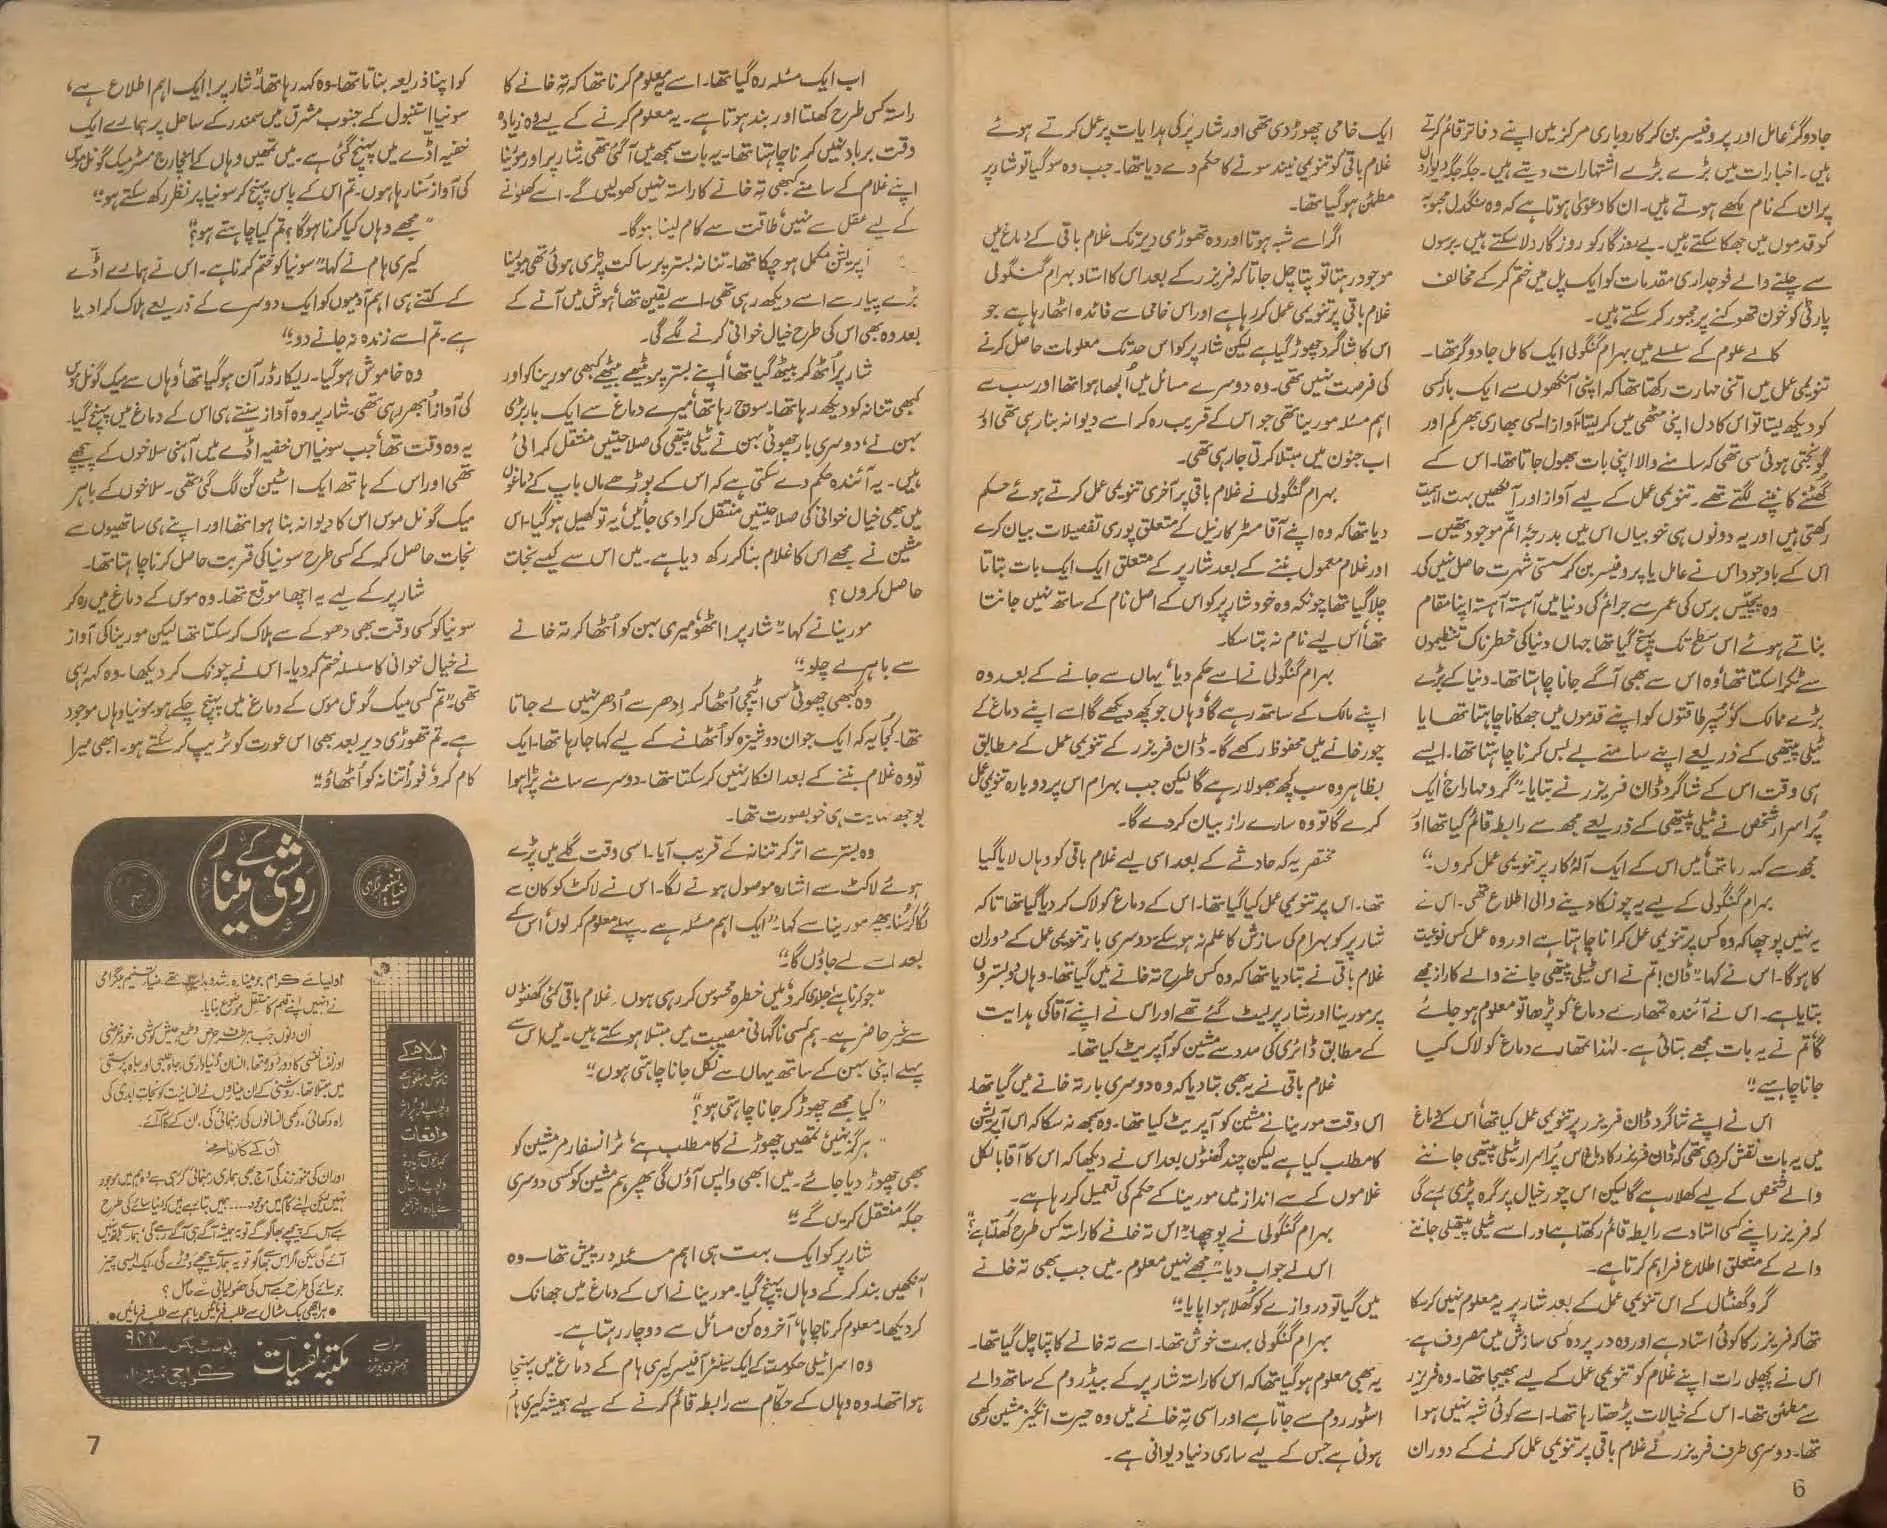 جادوگر، عامل اور پروفیسر بن کر کاروباری مرکز میں اپنے دفاتر قائم کرتے
ہیں۔ اخبارات میں بڑے بڑے اشتہارات دیتے ہیں۔ جگہ جگہ دیواروں
پر ان کے نام لکھے ہوتے ہیں۔ ان کا دعویٰ ہوتا ہے کہ وہ سنگدل محبوبہ
کو قدموں میں جھکا سکتے ہیں۔ بے روزگار کو روزگار دلا سکتے ہیں برسوں
سے چلنے والے فوجداری مقدمات کو ایک پل میں ختم کر کے مخالف
پارٹی کو خون تھوکنے پر مجبور کر سکتے ہیں۔
کالے علوم کے سلسلے میں بہرام گنگولی ایک کامل جادوگر تھا۔
تنویمی عمل میں اتنی مہارت رکھتا تھا کہ اپنی آنکھوں سے ایک بار کسی
کو دیکھ لیتا تو اس کا دل اپنی مٹھی میں کر لیتا، آواز ایسی بھاری بھرکم اور
گونجتی ہوئی سی تھی کہ سامنے والا اپنی بات بھول جاتا تھا۔ اس کے
گھٹنے کانپنے لگتے تھے۔ تنویمی عمل کے لیے آواز اور آنکھیں بہت اہمیت
رکھتی ہیں اور یہ دونوں ہی خوبیاں اس میں بدرجۂ اتم موجود تھیں۔
اس کے باوجود اس نے عامل یا پروفیسر بن کر سستی شہرت حاصل نہیں کی۔
وہ پچیس برس کی عمر سے جرائم کی دنیا میں آہستہ آہستہ اپنا مقام
بناتے ہوئے اس سطح تک پہنچ گیا تھا جہاں دنیا کی خطرناک تنظیموں
سے ٹکرا سکتا تھا، وہ اس سے بھی آگے جانا چاہتا تھا۔ دنیا کے بڑے
بڑے ممالک کو سپر طاقتوں کو اپنے قدموں میں جھکانا چاہتا تھا یا
ٹیلی پیتھی کے ذریعے اپنے سامنے بے بس کرنا چاہتا تھا۔ ایسے
ہی وقت اس کے شاگرد ڈان فریزر نے بتایا۔ "گرو مہاراج! ایک
پُراسرار شخص نے ٹیلی پیتھی کے ذریعے مجھ سے رابطہ قائم کیا تھا اور
مجھ سے کہہ رہا تھا، میں اس کے ایک آلۂ کار پر تنویمی عمل کروں۔"
بہرام گنگولی کے لیے یہ چونکا دینے والی اطلاع تھی۔ اس نے
یہ نہیں پوچھا کہ وہ کس پر تنویمی عمل کرانا چاہتا ہے اور وہ عمل کس نوعیت
کا ہوگا۔ اس نے کہا۔ "ڈان! تم نے اس ٹیلی پیتھی جاننے والے کا راز مجھے
بتایا ہے۔ اس نے آئندہ تمہارے دماغ کو پڑھا تو معلوم ہو جائے
گا تم نے یہ بات مجھے بتائی ہے۔ لہٰذا تمہارے دماغ کو لاک کیا
جانا چاہیے۔"
اس نے اپنے شاگرد ڈان فریزر پر تنویمی عمل کیا تھا، اس کے دماغ
میں یہ بات نقش کر دی تھی کہ ڈان فریزر کا دماغ اس پُراسرار ٹیلی پیتھی جاننے
والے شخص کے لیے کھلا رہے گا لیکن اس چور خیال پر گرہ پڑی رہے گی
کہ فریزر اپنے کسی استاد سے رابطہ قائم رکھتا ہے اور اسے ٹیلی پیتھی جاننے
والے کے متعلق اطلاع فراہم کرتا ہے۔
گرو گھنٹال کے اس تنویمی عمل کے بعد شارپر یہ معلوم نہیں کر سکا
تھا کہ فریزر کا کوئی استاد ہے اور وہ در پردہ کسی سازش میں مصروف ہے۔
اس نے پچھلی رات اپنے غلام کو تنویمی عمل کے لیے بھیجا تھا۔ وہ فریزر
سے مطمئن تھا۔ اس کے خیالات پڑھتا رہا تھا۔ اسے کوئی شبہ نہیں ہوا
تھا۔ دوسری طرف فریزر نے غلام باقی پر تنویمی عمل کرنے کے دوران
6
ایک خامی چھوڑ دی تھی اور شارپر کی ہدایات پر عمل کرتے ہوئے
غلام باقی کو تنویمی نیند سونے کا حکم دے دیا تھا۔ جب وہ سو گیا تو شارپر
مطمئن ہو گیا تھا۔
اگر اسے شبہ ہوتا اور وہ تھوڑی دیر تک غلام باقی کے دماغ میں
موجود رہتا تو پتا چل جاتا کہ فریزر کے بعد اس کا استاد بہرام گنگولی
غلام باقی پر تنویمی عمل کر رہا ہے اور اس خامی سے فائدہ اٹھا رہا ہے جو
اس کا شاگرد چھوڑ گیا ہے لیکن شارپر کو اس حد تک معلومات حاصل کرنے
کی فرصت نہیں تھی۔ وہ دوسرے مسائل میں اُلجھا ہوا تھا اور سب سے
اہم مسئلہ مورینا تھی جو اس کے قریب رہ کر اسے دیوانہ بنا رہی تھی اور
اب جنون میں مبتلا کرتی جا رہی تھی۔
بہرام گنگولی نے غلام باقی پر آخری تنویمی عمل کرتے ہوئے حکم
دیا تھا کہ وہ اپنے آقا مسٹر کارنیل کے متعلق پوری تفصیلات بیان کرے
اور غلام معمول بننے کے بعد شارپر کے متعلق ایک ایک بات بتاتا
چلا گیا تھا چونکہ وہ خود شارپر کو اس کے اصل نام کے ساتھ نہیں جانتا
تھا، اس لیے نام نہ بتا سکا۔
بہرام گنگولی نے اسے حکم دیا، یہاں سے جانے کے بعد وہ
اپنے مالک کے ساتھ رہے گا، وہاں جو کچھ دیکھے گا اسے اپنے دماغ کے
چور خانے میں محفوظ رکھے گا۔ ڈان فریزر کے تنویمی عمل کے مطابق
بظاہر وہ سب کچھ بھولا رہے گا لیکن جب بہرام اس پر دوبارہ تنویمی عمل
کرے گا تو وہ سارے راز بیان کر دے گا۔
مختصر یہ کہ حادثے کے بعد اسی لیے غلام باقی کو وہاں لایا گیا
تھا۔ اس پر تنویمی عمل کیا گیا تھا۔ اس کے دماغ کو لاک کر دیا گیا تھا تاکہ
شارپر کو بہرام کی سازش کا علم نہ ہو سکے دوسری بار تنویمی عمل کے دوران
غلام باقی نے بتا دیا تھا کہ وہ کس طرح تہ خانے میں گیا تھا۔ وہاں دو بستروں
پر مورینا اور شارپر لیٹ گئے تھے اور اس نے اپنے آقا کی ہدایت
کے مطابق ڈائری کی مدد سے مشین کو آپریٹ کیا تھا۔
غلام باقی نے یہ بھی بتا دیا کہ وہ دوسری بار تہ خانے میں گیا تھا۔
اس وقت مورینا نے مشین کو آپریٹ کیا تھا۔ وہ سمجھ نہ سکا کہ اس آپریشن
کا مطلب کیا ہے لیکن چند گھنٹوں بعد اس نے دیکھا کہ اس کا آقا بالکل
غلاموں کے سے انداز میں مورینا کے حکم کی تعمیل کر رہا ہے۔
بہرام گنگولی نے پوچھا۔ "اس تہ خانے کا راستہ کس طرح کھلتا ہے؟"
اس نے جواب دیا۔ "مجھے نہیں معلوم۔ میں جب بھی تہ خانے
میں گیا تو دروازے کو کھلا ہوا پایا۔"
بہرام گنگولی بہت خوش تھا۔ اسے تہ خانے کا پتا چل گیا تھا۔
یہ بھی معلوم ہو گیا تھا کہ اس کا راستہ شارپر کے بیڈ روم کے ساتھ والے
اسٹور روم سے جاتا ہے اور اسی تہ خانے میں وہ حیرت انگیز مشین رکھی
ہوئی ہے جس کے لیے ساری دنیا دیوانی ہے۔
اب ایک مسئلہ رہ گیا تھا۔ اسے یہ معلوم کرنا تھا کہ تہ خانے کا
راستہ کس طرح کھلتا اور بند ہوتا ہے۔ یہ معلوم کرنے کے لیے وہ زیادہ
وقت برباد نہیں کرنا چاہتا تھا۔ یہ بات سمجھ میں آ گئی تھی، شارپر اور مورینا
اپنے غلام کے سامنے کبھی تہ خانے کا راستہ نہیں کھولیں گے۔ اسے کھولنے
کے لیے عقل سے نہیں، طاقت سے کام لینا ہوگا۔
آپریشن مکمل ہو چکا تھا۔ تنانہ بستر پر ساکت پڑی ہوئی تھی مورینا
بڑے پیار سے اسے دیکھ رہی تھی۔ اسے یقین تھا، ہوش میں آنے کے
بعد وہ بھی اس کی طرح خیال خوانی کرنے لگے گی۔
شارپر اُٹھ کر بیٹھ گیا تھا، اپنے بستر پر بیٹھے بیٹھے کبھی مورینا کو اور
کبھی تنانہ کو دیکھ رہا تھا۔ سوچ رہا تھا، میرے دماغ سے ایک بار بڑی
بہن نے، دوسری بار چھوٹی بہن نے ٹیلی پیتھی کی صلاحیتیں منتقل کرائی
ہیں۔ یہ آئندہ حکم دے سکتی ہے کہ اس کے بوڑھے ماں باپ کے دماغوں
میں بھی خیال خوانی کی صلاحیتیں منتقل کرا دی جائیں، یہ تو کھیل ہو گیا۔ اس
مشین نے مجھے اس کا غلام بنا کر رکھ دیا ہے۔ میں اس سے کیسے نجات
حاصل کروں؟
مورینا نے کہا۔ "شارپر! اٹھو، میری بہن کو اٹھا کر تہ خانے
سے باہر لے چلو۔"
وہ کبھی چھوٹی سی اٹیچی اُٹھا کر اِدھر سے اُدھر نہیں لے جاتا
تھا۔ کجا یہ کہ ایک جوان دوشیزہ کو اُٹھانے کے لیے کہا جا رہا تھا۔ ایک
تو وہ غلام بننے کے بعد انکار نہیں کر سکتا تھا۔ دوسرے سامنے پڑا ہوا
بوجھ نہایت ہی خوبصورت تھا۔
وہ بستر سے اتر کر تنانہ کے قریب آیا۔ اسی وقت گلے میں پڑے
ہوئے لاکٹ سے اشارہ موصول ہونے لگا۔ اس نے لاکٹ کو کان سے
لگا کر سُنا پھر مورینا سے کہا۔ "ایک اہم مسئلہ ہے۔ پہلے معلوم کر لوں، اس کے
بعد اسے لے جاؤں گا۔"
"جو کرنا ہے جلدی کرو، میں خطرہ محسوس کر رہی ہوں۔ غلام باقی کئی گھنٹوں
سے غیر حاضر ہے۔ ہم کسی ناگہانی مصیبت میں مبتلا ہو سکتے ہیں۔ میں اس سے
پہلے اپنی بہن کے ساتھ یہاں سے نکل جانا چاہتی ہوں۔"
"کیا مجھے چھوڑ کر جانا چاہتی ہو؟"
"ہرگز نہیں، تمہیں چھوڑنے کا مطلب ہے، ٹرانسفارمر مشین کو
بھی چھوڑ دیا جائے۔ میں ابھی واپس آؤں گی پھر ہم مشین کو کسی دوسری
جگہ منتقل کریں گے۔"
شارپر کو ایک بہت ہی اہم مسئلہ درپیش تھا۔ وہ
آنکھیں بند کر کے وہاں پہنچ گیا۔ مورینا نے اس کے دماغ میں جھانک
کر دیکھا۔ معلوم کرنا چاہا، آخر وہ کن مسائل سے دوچار رہتا ہے۔
وہ اسرائیلی حکومت کے ایک سینئر آفیسر کیری ہام کے دماغ میں پہنچا
ہوا تھا۔ وہ وہاں کے حکام سے رابطہ قائم کرنے کے لیے ہمیشہ کیری ہام
کو اپنا ذریعہ بناتا تھا۔ وہ کہہ رہا تھا۔ "شارپر! ایک اہم اطلاع ہے،
سونیا استنبول کے جنوب مشرق میں سمندر کے ساحل پر ہمارے ایک
خفیہ اڈے میں پہنچ گئی ہے۔ میں تمہیں وہاں کے انچارج مسٹر میک گونل موس
کی آواز سُنا رہا ہوں۔ تم اس کے پاس پہنچ کر سونیا پر نظر رکھ سکتے ہو۔"
"مجھے وہاں کیا کرنا ہوگا؟ تم کیا چاہتے ہو؟"
کیری ہام نے کہا۔ "سونیا کو ختم کرنا ہے۔ اس نے ہمارے اڈے
کے کتنے ہی اہم آدمیوں کو ایک دوسرے کے ذریعے ہلاک کرا دیا
ہے۔ تم اسے زندہ نہ جانے دو۔"
وہ خاموش ہو گیا۔ ریکارڈر آن ہو گیا تھا، وہاں سے میک گونل موس
کی آواز ابھر رہی تھی۔ شارپر وہ آواز سنتے ہی اس کے دماغ میں پہنچ گیا۔
یہ وہ وقت تھا، جب سونیا اس خفیہ اڈے میں آہنی سلاخوں کے پیچھے
تھی اور اس کے ہاتھ ایک اسٹین گن لگ گئی تھی۔ سلاخوں کے باہر
میک گونل موس اس کا دیوانہ بنا ہوا تھا اور اپنے ہی ساتھیوں سے
نجات حاصل کر کے کسی طرح سونیا کی قربت حاصل کرنا چاہتا تھا۔
شارپر کے لیے یہ اچھا موقع تھا۔ وہ موس کے دماغ میں رہ کر
سونیا کو کسی وقت بھی دھوکے سے ہلاک کر سکتا تھا لیکن مورینا کی آواز
نے خیال خوانی کا سلسلہ ختم کر دیا۔ اس نے چونک کر دیکھا۔ وہ کہہ رہی
تھی۔ "تم کسی میک گونل موس کے دماغ میں پہنچ چکے ہو، سونیا وہاں موجود
ہے۔ تم تھوڑی دیر بعد بھی اس عورت کو ٹریپ کر سکتے ہو۔ ابھی میرا
کام کرو، فوراً تنانہ کو اُٹھاؤ۔"
روشنی کے مینار
ضیا تسنیم بلگرامی
اسلام کے
واقعات
نے انہیں اپنے قلم کا مستقل موضوع بنایا۔
اُن دنوں جب ہر طرف حرص و طمع، عیش کوشی، خود غرضی
اور نفسا نفسی کا دور دورہ تھا، انسان دنیا داری، جاہ طلبی اور جاہ پرستی
میں مبتلا تھا، روشنی کے ان میناروں نے انسانیت کو نجات ابدی کی
راہ دکھائی، دکھی انسانوں کی رہنمائی کی، ان کے کام آئے۔
اُن کے کارنامے
مکتبہ نفسیات
پوسٹ بکس ۹۲۴
کراچی نمبر ۱
7